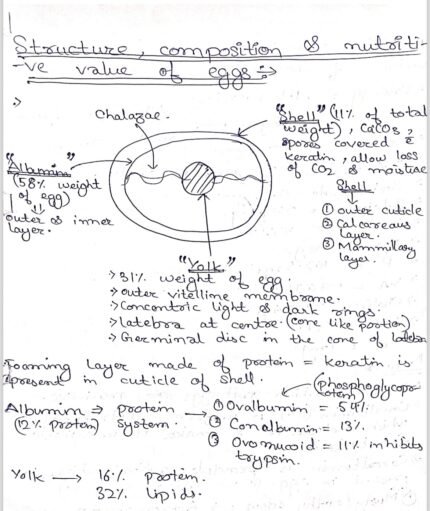 Structure, composition & nutriti-
-ve value of eggs :⇒
:>
Chalazae.
"Shell" (11% of total
weight), CaCO3,
spores covered c̄
keratin, allow loss
of CO2 & moistrae
Shell
① outer cuticle
② Calcareous
layer.
③ Mammillary
layer.
"Albumin"
(58% weight
of egg)
outer & inner
layer.
"Yolk"
> 31% weight of egg.
> outer vitelline membrane.
> Concontric light & dark rings.
> latebra at centre. (cone like portion)
> Germinal disc in the cone of latebra
Foaming layer made of protein = keratin is
present in cuticle of shell.
(phosphoglycopr
otein)
Albumim ⇒ protein → ① Ovalbumin = 54%
(12% protan) system. ② Conalbumin = 13%
③ Ovomucoid = 11% inhibits
trypsin.
Yolk → 16% protein.
32% lipids.